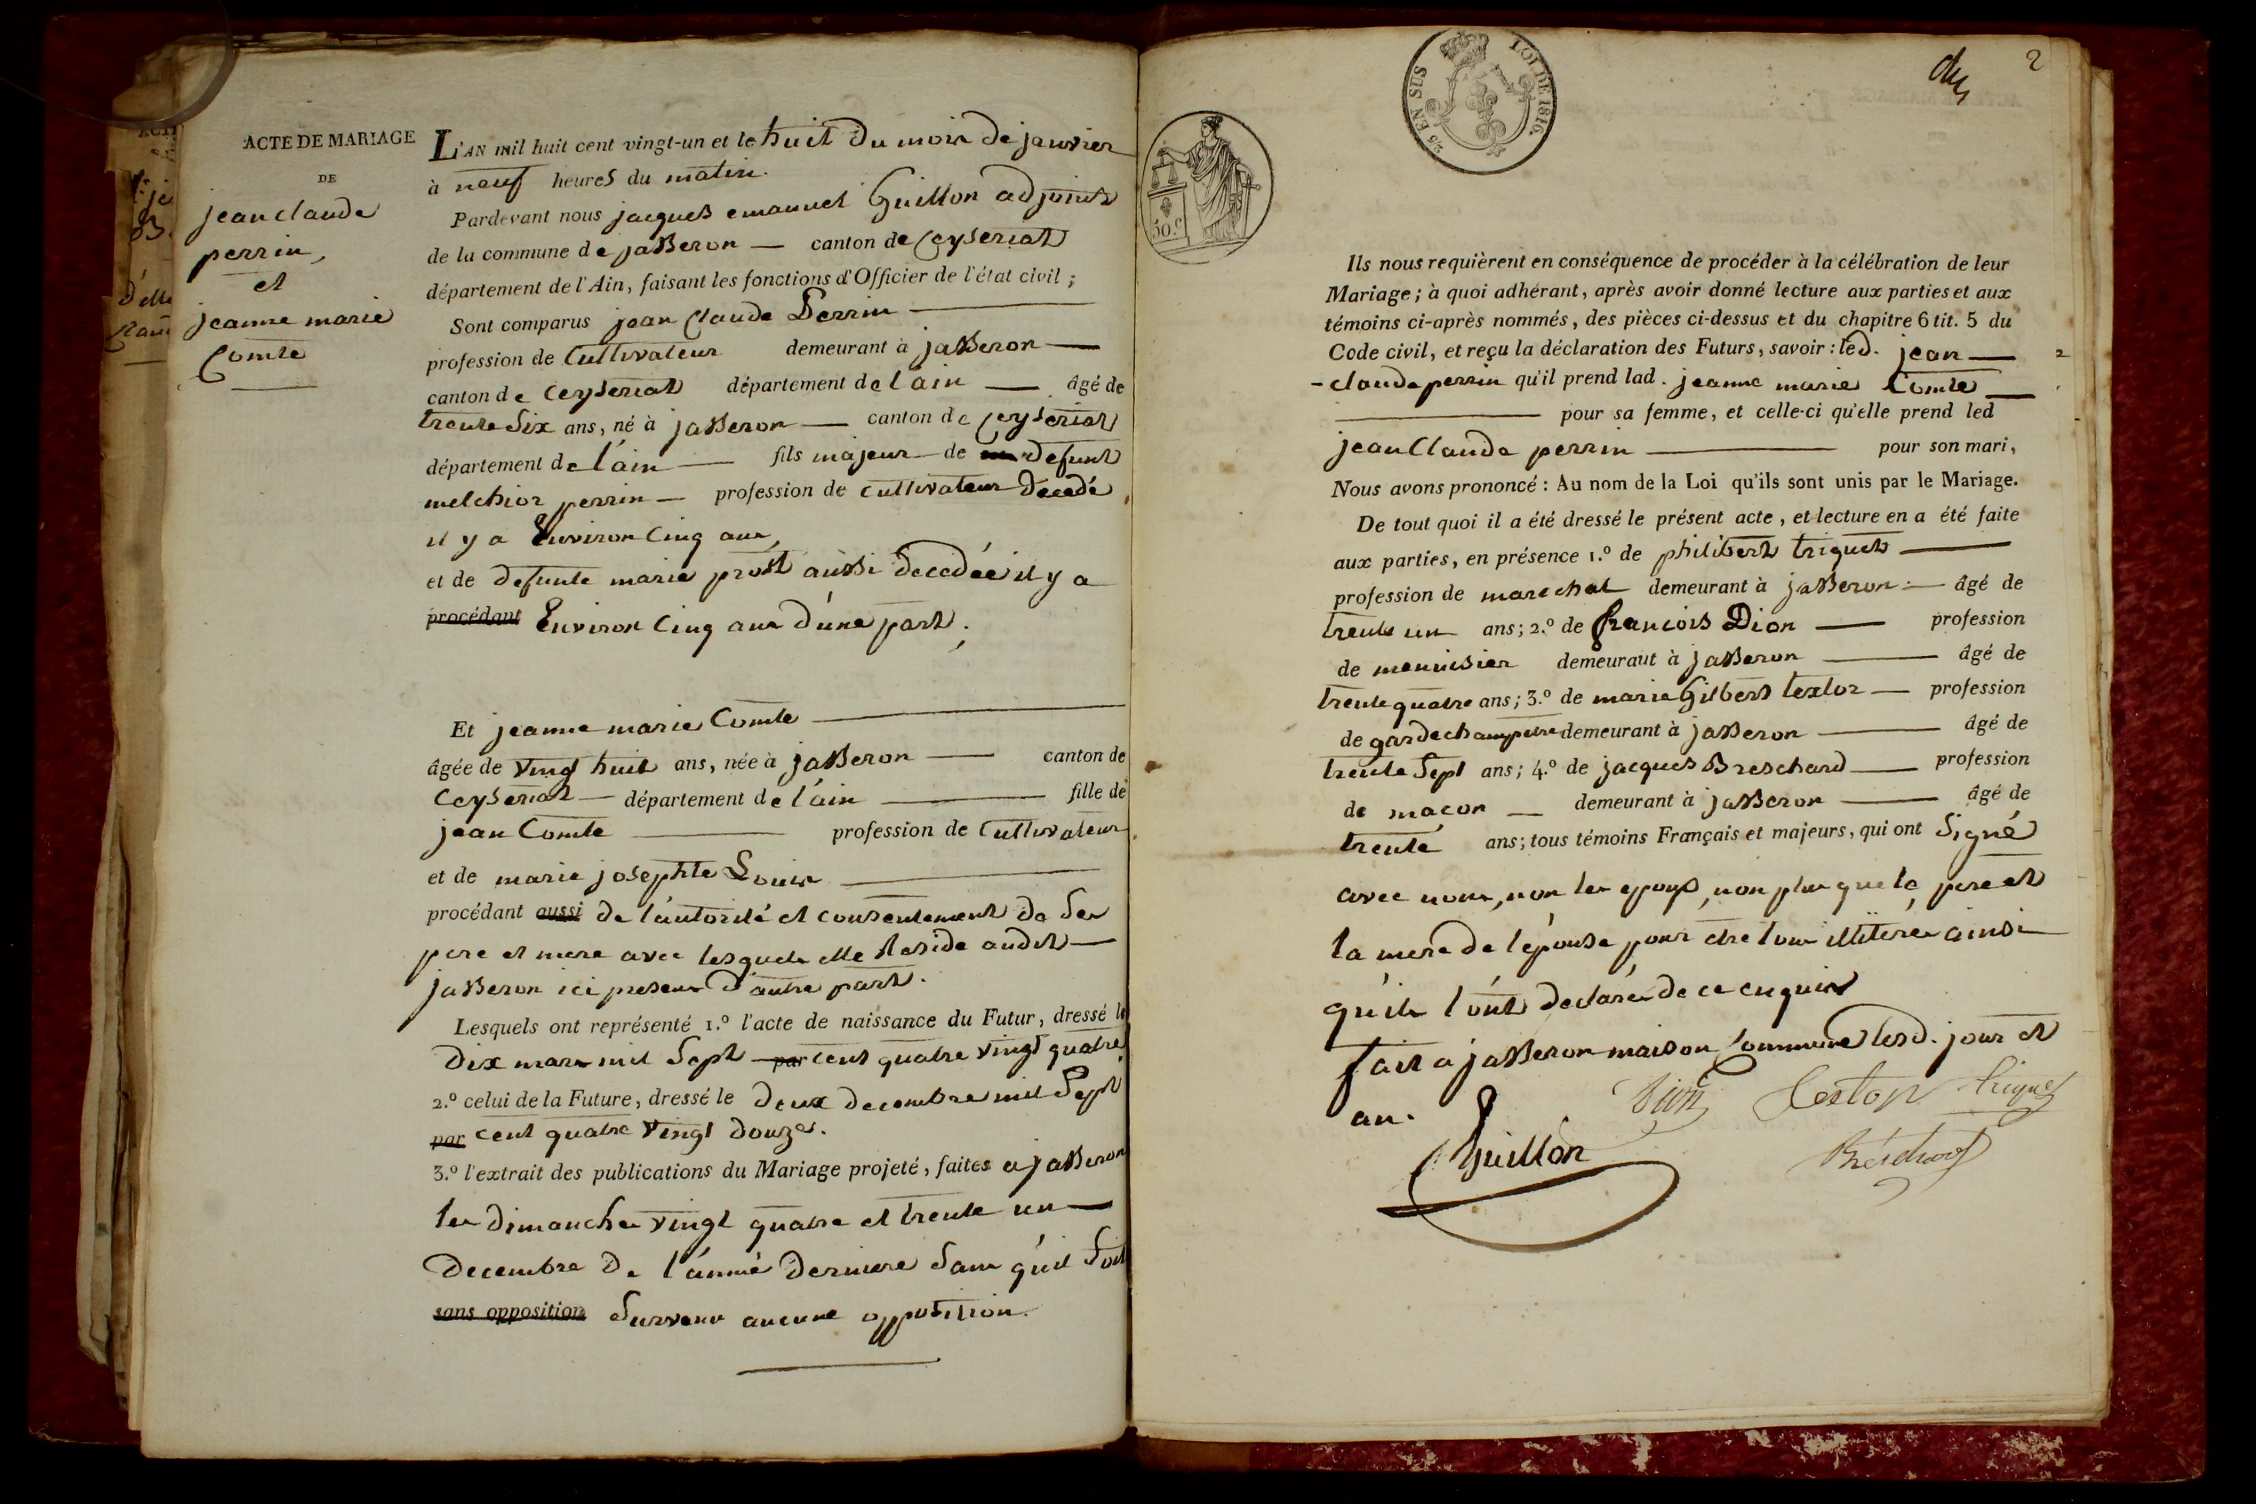 ACTE DE MARIAGE
DE
jean claude
perrin,
et
jeanne marie
Comte
L'AN mil huit cent vingt-un et le huit du mois de janvier
à neuf heures du matin.
Pardevant nous jacques emanuel Guillon adjoint
de la commune de jasseron — canton de Ceyseriat
département de l'Ain, faisant les fonctions d'Officier de l'état civil ;
Sont comparus jean Claude Perrin —
profession de Cultivateur demeurant à jasseron —
canton de Ceyseriat département de l'ain — âgé de
trente Six ans, né à jasseron — canton de Ceyseriat
département de l'ain — fils majeur de defunt
melchior perrin — profession de cultivateur décedé
il y a Environ Cinq ans,
et de defunte marie prost aussi decedée il y a
procédant Environ Cinq ans d'une part.
Et jeanne marie Comte —
âgée de vingt huit ans, née à jasseron — canton de
Ceyseriat — département de l'ain — fille de
jean Comte — profession de Cultivateur
et de marie josephte Louis —
procédant aussi de l'autorité et consentement de Ses
pere et mere avec lesquels elle Reside audit —
jasseron ici presens d'autre part.
Lesquels ont représenté 1.º l'acte de naissance du Futur, dressé le
Dix mars mil Sept par cent quatre vingt quatre
2.º celui de la Future, dressé le deux decembre mil Sept
par cent quatre vingt douze.
3.º l'extrait des publications du Mariage projeté, faites a jasseron
les dimanches vingt quatre et trente un —
decembre de l'année derniere Sans qu'il Soit
sans opposition Survenu aucune opposition.
25 EN SUS LOI DE 1816.
50.C
2
Ils nous requièrent en conséquence de procéder à la célébration de leur
Mariage ; à quoi adhérant, après avoir donné lecture aux parties et aux
témoins ci-après nommés, des pièces ci-dessus et du chapitre 6 tit. 5 du
Code civil, et reçu la déclaration des Futurs, savoir : led. jean —
- claude perrin qu'il prend lad. jeanne marie Comte —
— pour sa femme, et celle-ci qu'elle prend led
jean Claude perrin — pour son mari,
Nous avons prononcé : Au nom de la Loi qu'ils sont unis par le Mariage.
De tout quoi il a été dressé le présent acte, et lecture en a été faite
aux parties, en présence 1.º de philibert triquet —
profession de marechal demeurant à jasseron — âgé de
trente un ans ; 2.º de francois Dion — profession
de menuisier demeurant à jasseron — âgé de
trente quatre ans ; 3.º de marie Gilbert textor — profession
de garde champetre demeurant à jasseron — âgé de
trente Sept ans ; 4.º de jacques Breschard — profession
de macon — demeurant à jasseron — âgé de
trente ans ; tous témoins Français et majeurs, qui ont Signé
avec nous, non les epoux, non plus que le pere et
la mere de l'épouse pour etre tous illiterés ainsi
qu'ils l'ont declaré de ce enquis
fait a jasseron maison Commune lesd. jour et
an.
Dion Textor triquet
Guillon Bréchard